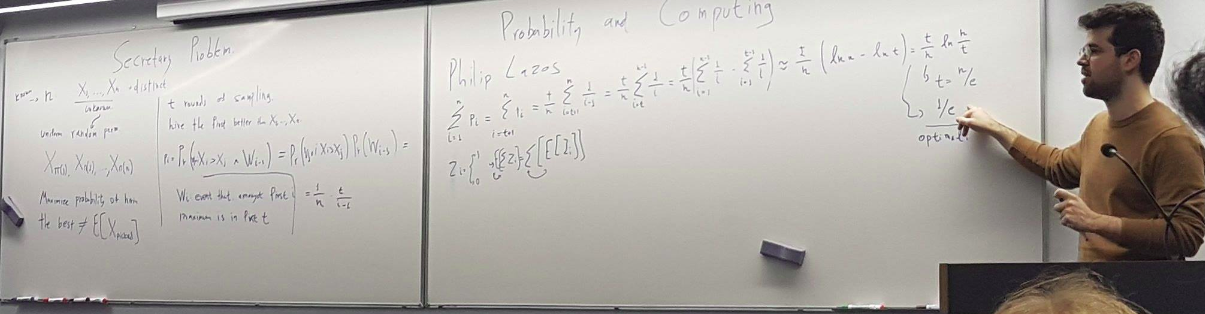 Secretary Problem
→ n X₁, ..., Xₙ - distinct
unknown
uniform random perm
X_π(1), X_π(2), ..., X_π(n)
Maximize probability of
the best ≠ E[X
t rounds of sampling.
hire the first better than X₁...Xₜ
Pᵢ = Pr(∀j≠i Xᵢ>Xⱼ ∧ Wᵢ₋₁) = Pr(∀j≠i Xᵢ>Xⱼ) Pr(Wᵢ₋₁) =
= 1/n · t/(i-1)
Wᵢ event that amongst first i
maximum is in first t
Probability and Computing
Philip Lazos
∑_{i=1}^{n} Pᵢ = ∑_{i=t+1}^{n} Pᵢ = t/n ∑_{i=t+1}^{n} 1/(i-1) = t/n ∑_{i=t}^{n-1} 1/i = t/n (∑_{i=1}^{n-1} 1/i - ∑_{i=1}^{t-1} 1/i) ≈ t/n (ln n - ln t) = t/n ln n/t
t = n/e
1/e
optimal
Zᵢ = { 1 0 → E[∑Zᵢ] = ∑[E[Zᵢ]]